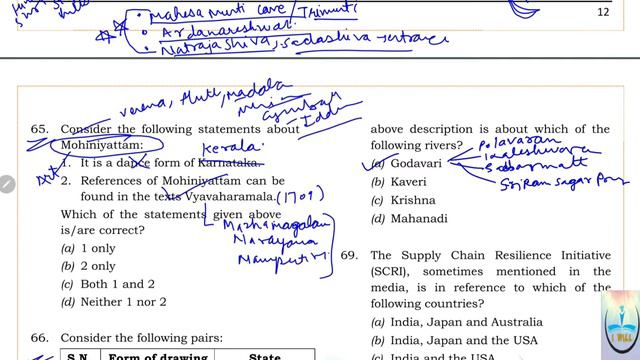 Mahesa murti cave / Trimurti
Ardanareshwar
Natraja Shiva, Sadashiva - entrance
12
veena, flute, madala
65. Consider the following statements about
Mohiniyattam:
Kerala
1. It is a dance form of Karnataka.
2. References of Mohiniyattam can be
found in the texts Vyavaharamala. (1709)
Which of the statements given above
is/are correct?
(a) 1 only
(b) 2 only
(c) Both 1 and 2
(d) Neither 1 nor 2
Narayana
66. Consider the following pairs:
S.N. Form of drawing State
above description is about which of the
following rivers?
(a) Godavari
(b) Kaveri
(c) Krishna
(d) Mahanadi
Polavaram
Sriram Sagar
69. The Supply Chain Resilience Initiative
(SCRI), sometimes mentioned in the
media, is in reference to which of the
following countries?
(a) India, Japan and Australia
(b) India, Japan and the USA
(c) India and the USA
I WILL